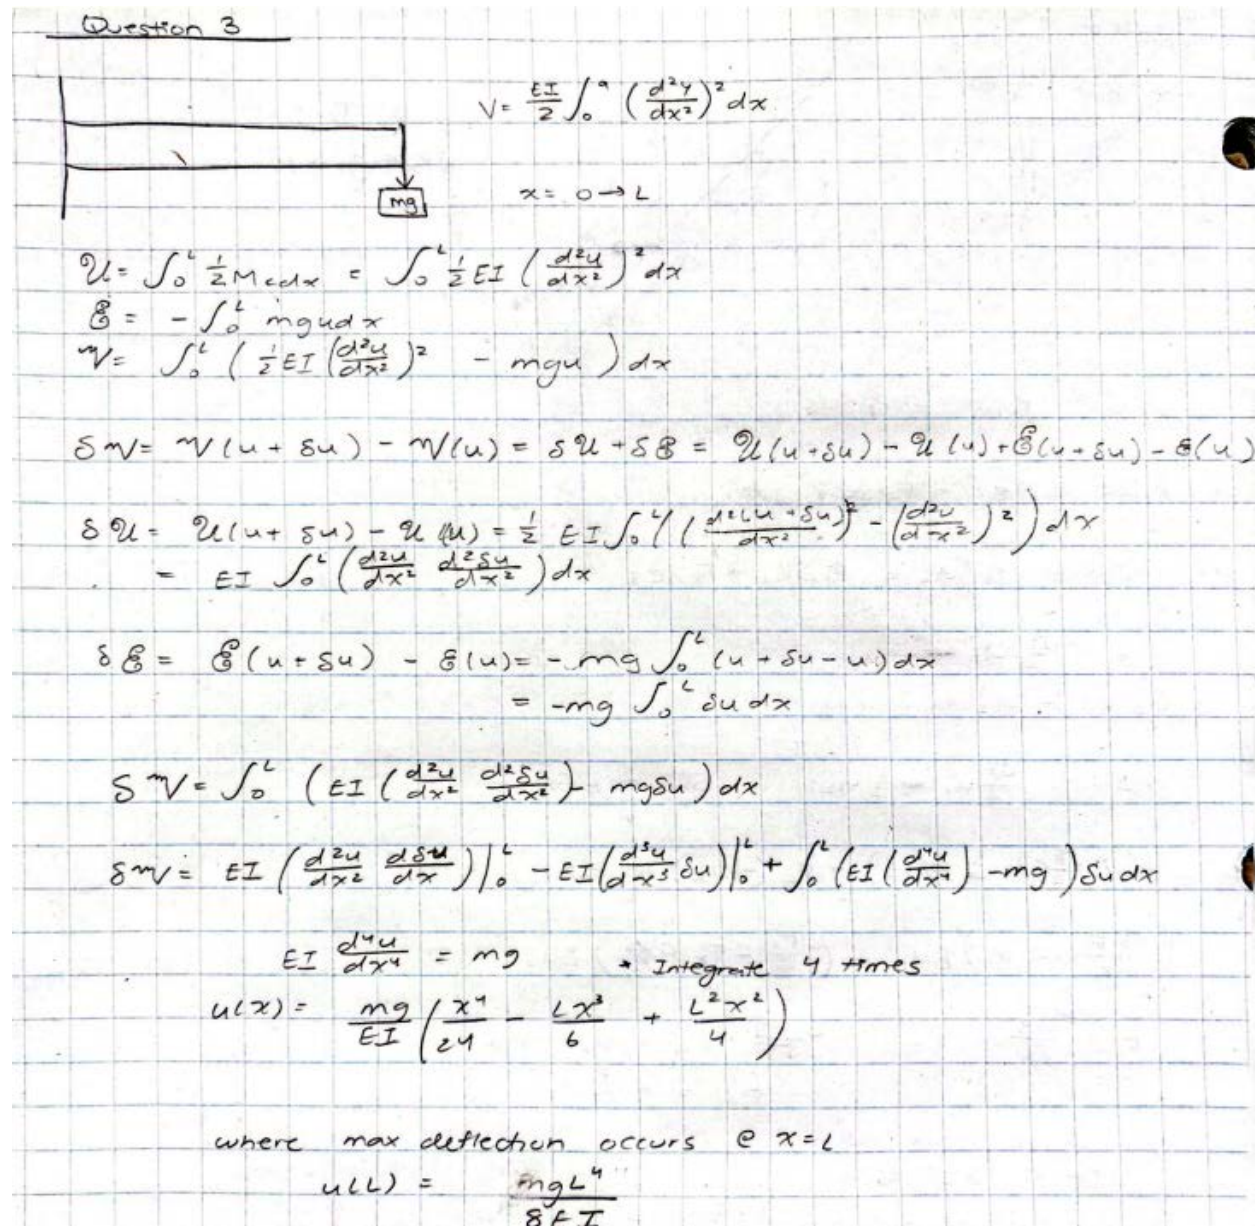 Question 3
V = EI/2 ∫₀ᵃ (d²y/dx²)² dx
mg
x = 0 → L
𝒰 = ∫₀ᴸ ½ Mκdx = ∫₀ᴸ ½ EI (d²u/dx²)² dx
ℰ = - ∫₀ᴸ mgudx
𝒱 = ∫₀ᴸ (½ EI (d²u/dx²)² - mgu) dx
δ𝒱 = 𝒱(u + δu) - 𝒱(u) = δ𝒰 + δℰ = 𝒰(u + δu) - 𝒰(u) + ℰ(u + δu) - ℰ(u)
δ𝒰 = 𝒰(u + δu) - 𝒰(u) = ½ EI ∫₀ᴸ ((d²(u + δu)/dx²)² - (d²u/dx²)²) dx
= EI ∫₀ᴸ (d²u/dx² d²δu/dx²) dx
δℰ = ℰ(u + δu) - ℰ(u) = - mg ∫₀ᴸ (u + δu - u) dx
= -mg ∫₀ᴸ δu dx
δ𝒱 = ∫₀ᴸ (EI (d²u/dx² d²δu/dx²) - mgδu) dx
δ𝒱 = EI (d²u/dx² dδu/dx)|₀ᴸ - EI (d³u/dx³ δu)|₀ᴸ + ∫₀ᴸ (EI (d⁴u/dx⁴) - mg) δu dx
EI d⁴u/dx⁴ = mg * Integrate 4 times
u(x) = mg/EI (x⁴/24 - Lx³/6 + L²x²/4)
where max deflection occurs @ x=L
u(L) = mgL⁴/8EI